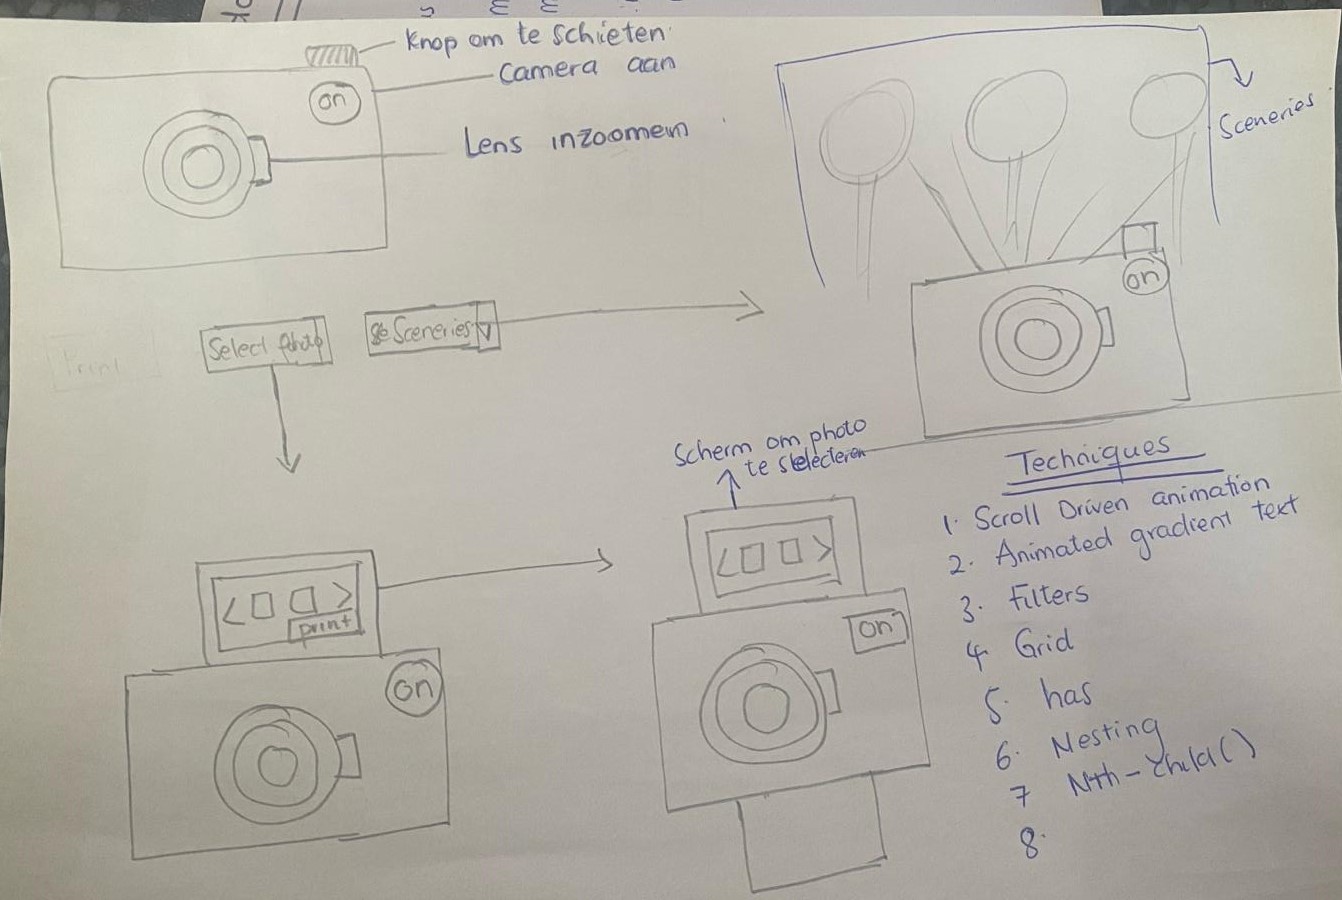 Knop om te schieten
Camera aan
on
Lens inzoomen
Sceneries
on
Print
Select photo
Sceneries
Scherm om photo
te selecteren
< >
print
on
< >
on
Techniques
1. Scroll Driven animation
2. Animated gradient text
3. Filters
4 Grid
5. has
6. Nesting
7 Nth-child()
8.